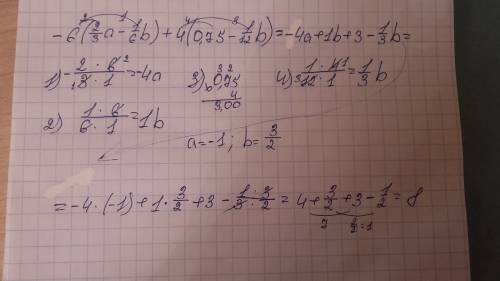 -6(2/3a - 1/6b) + 4(0,75 - 1/12b) = -4a + 1b + 3 - 1/3b =
1) -2·6/3·1 = -4a 3) 0,75 4) 1·4/12·1 = 1/3b
4
3,00
2) 1·6/6·1 = 1b
a = -1; b = 3/2
= -4·(-1) + 1·3/2 + 3 - 1·3/3·2 = 4 + 3/2 + 3 - 1/2 = 8
7 2/2=1